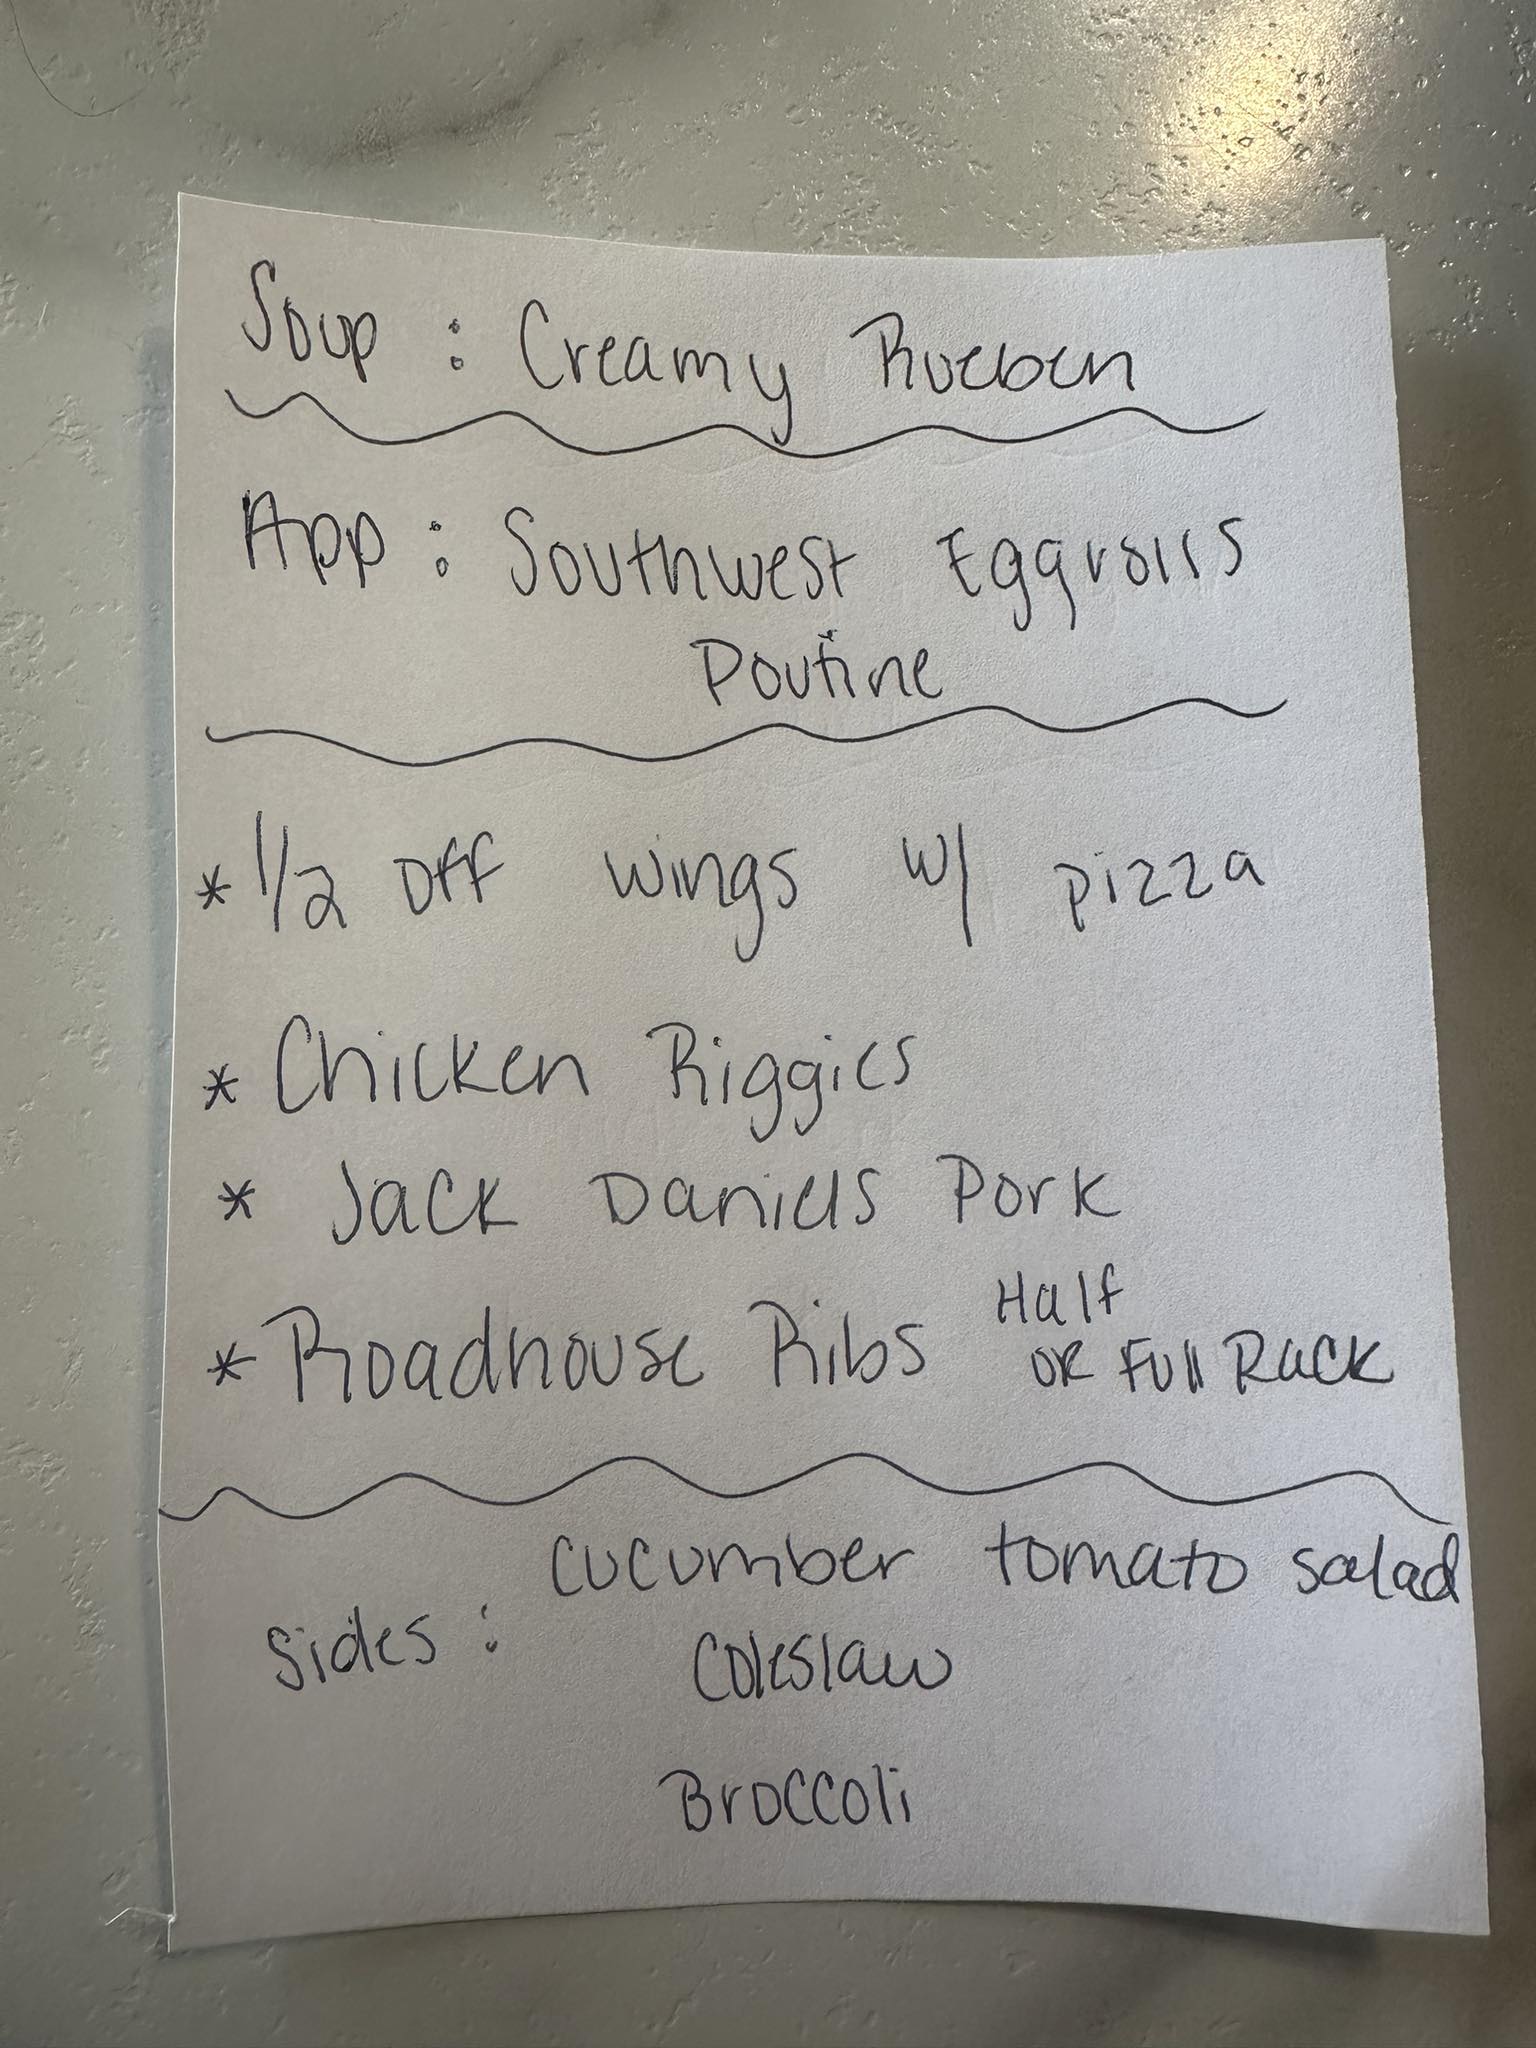 Soup : Creamy Rueben
App : Southwest Eggrolls
Poutine
* 1/2 off wings w/ pizza
* Chicken Riggies
* Jack Daniels Pork
* Roadhouse Ribs Half
or Full Rack
cucumber tomato salad
Sides : Coleslaw
Broccoli